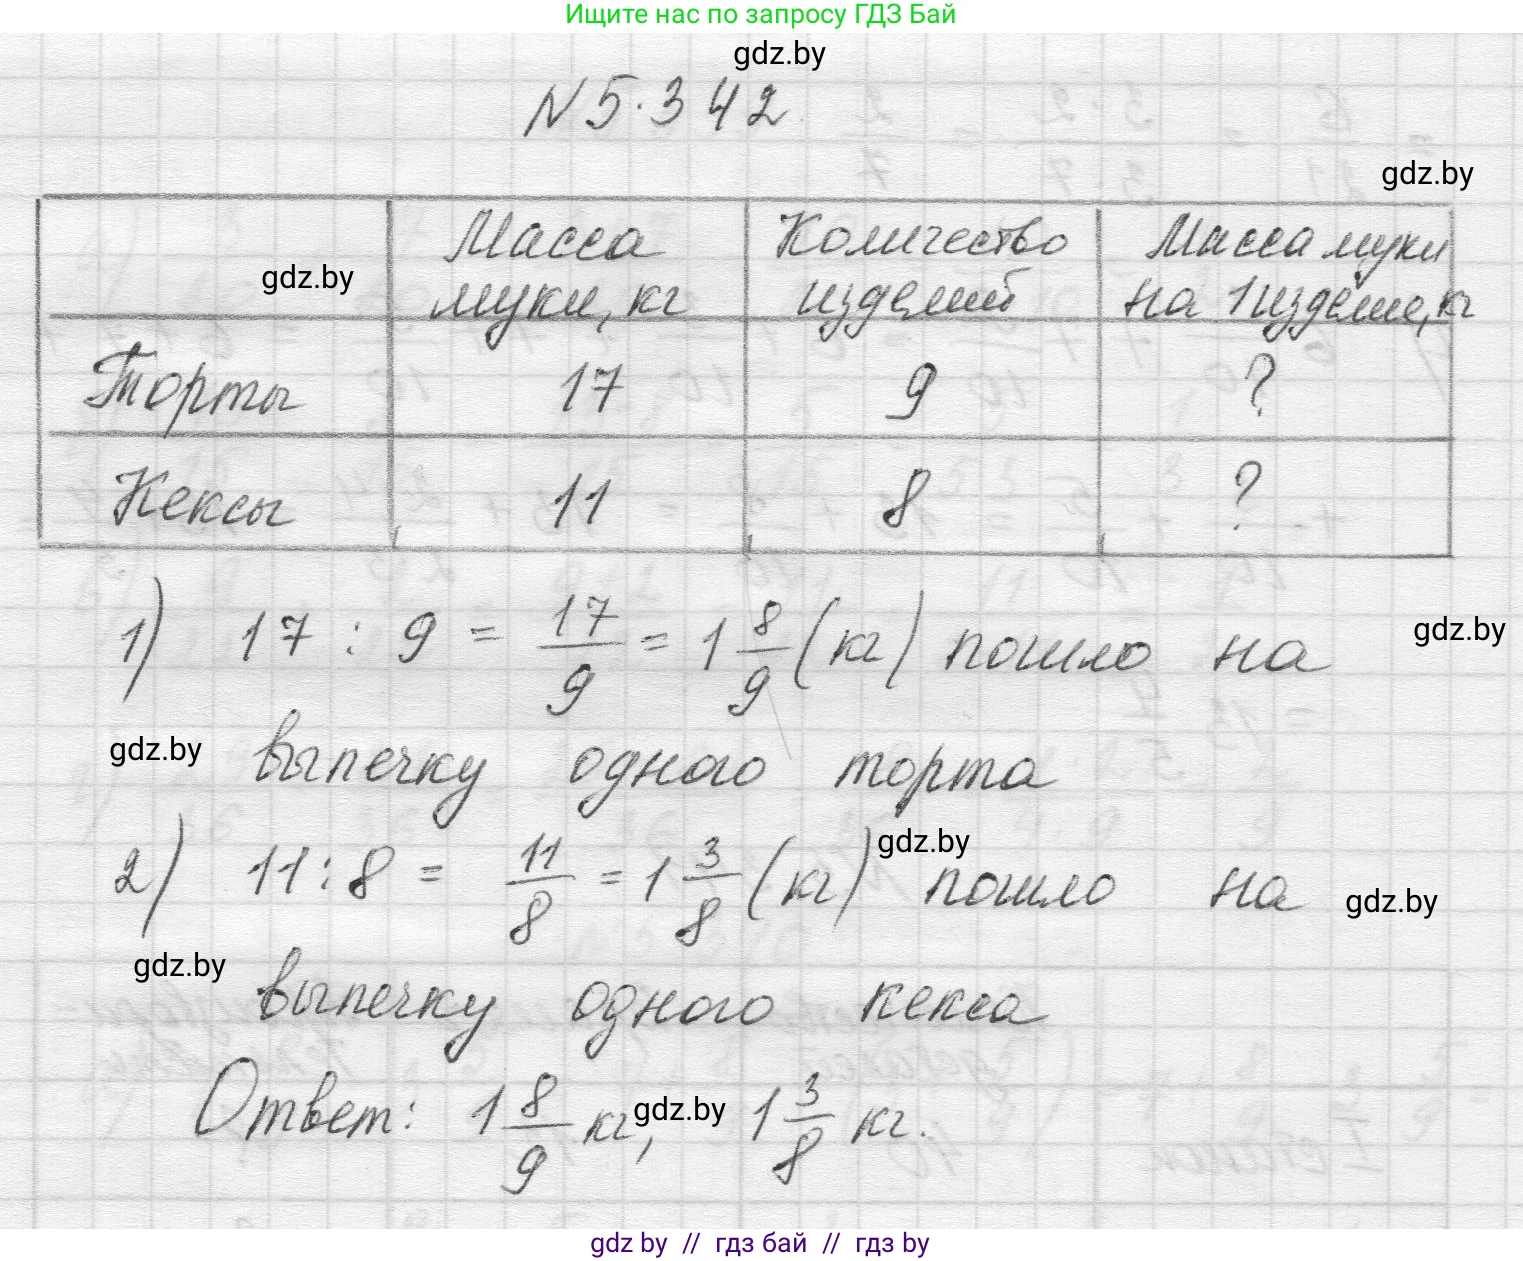 Ищите нас по запросу ГДЗ Бай
gdz.by
N 5.342
gdz.by
Масса муки, кг
Количество изделий
Масса муки на 1 изделие, кг
gdz.by
Торты 17 9 ?
Кексы 11 8 ?
1) 17 : 9 = 17/9 = 1 8/9 (кг) пошло на
gdz.by
gdz.by
выпечку одного торта
gdz.by
2) 11 : 8 = 11/8 = 1 3/8 (кг) пошло на
gdz.by
gdz.by
выпечку одного кекса
Ответ: 1 8/9 кг, 1 3/8 кг.
gdz.by
gdz by // гдз бай // гдз by